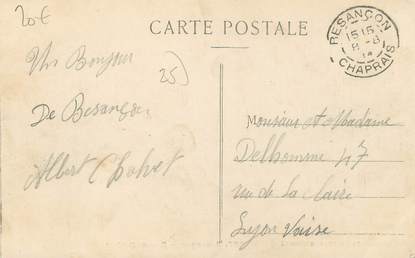 20€
CARTE POSTALE
BESANÇON
15 15
8 - 8
14
CHAPRAIS
Un Bonjour
25
De Besançon
Albert
Monsieur et Madame
Delhomme 47
rue de La Claire
Lyon Vaise